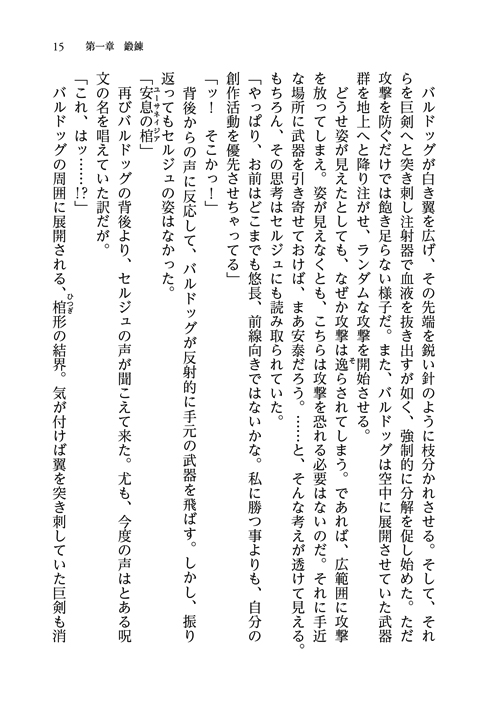 15　第一章　鍛錬
　バルドッグが白き翼を広げ、その先端を鋭い針のように枝分かれさせる。そして、それ
らを巨剣へと突き刺し注射器で血液を抜き出すが如く、強制的に分解を促し始めた。ただ
攻撃を防ぐだけでは飽き足らない様子だ。また、バルドッグは空中に展開させていた武器
群を地上へと降り注がせ、ランダムな攻撃を開始させる。
　どうせ姿が見えたとしても、なぜか攻撃は逸らされてしまう。であれば、広範囲に攻撃
そ
を放ってしまえ。姿が見えなくとも、こちらは攻撃を恐れる必要はないのだ。それに手近
な場所に武器を引き寄せておけば、まあ安泰だろう。……と、そんな考えが透けて見える。
もちろん、その思考はセルジュにも読み取られていた。
「やっぱり、お前はどこまでも悠長、前線向きではないかな。私に勝つ事よりも、自分の
創作活動を優先させちゃってる」
「ッ！　そこかっ！」
　背後からの声に反応して、バルドッグが反射的に手元の武器を飛ばす。しかし、振り
返ってもセルジュの姿はなかった。
「安息の棺」
ユーサネイジア
　再びバルドッグの背後より、セルジュの声が聞こえて来た。尤も、今度の声はとある呪
文の名を唱えていた訳だが。
「これ、はッ……!?」
　バルドッグの周囲に展開される、棺形の結界。気が付けば翼を突き刺していた巨剣も消
ひつぎ